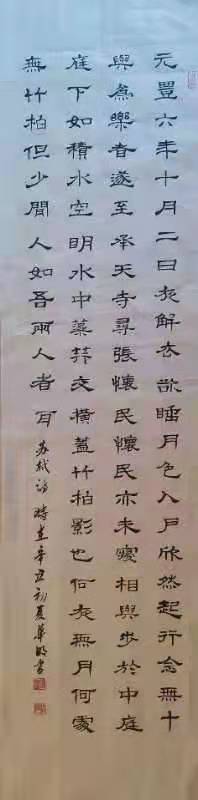 元豐六年十月二日夜解衣欲睡月色入戶欣然起行念無十
與為樂者遂至承天寺尋張懷民懷民亦未寢相與步於中庭
庭下如積水空明水中藻荇交橫蓋竹柏影也何夜無月何處
無竹柏但少閒人如吾兩人者耳 苏轼詩 時在辛丑初夏華書